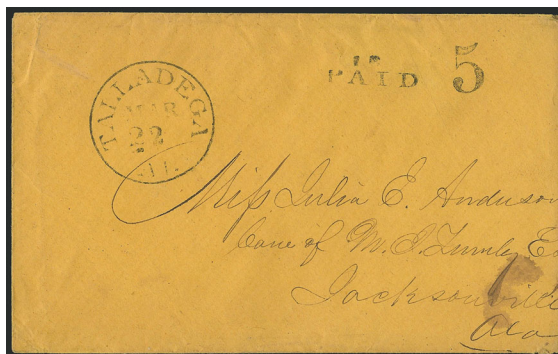 TALLADEGA
MAR
22
PAID 5
Miss Julia E. Anderson
Care of M. J. Turnley Es
Jacksonville
Ala